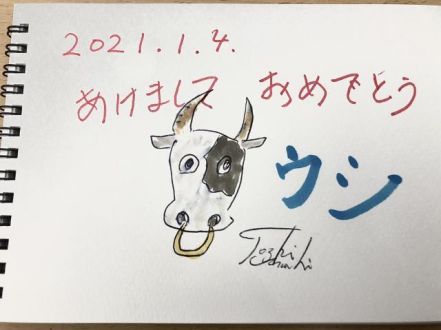 2021.1.4.
あけまして おめでとう
ウシ